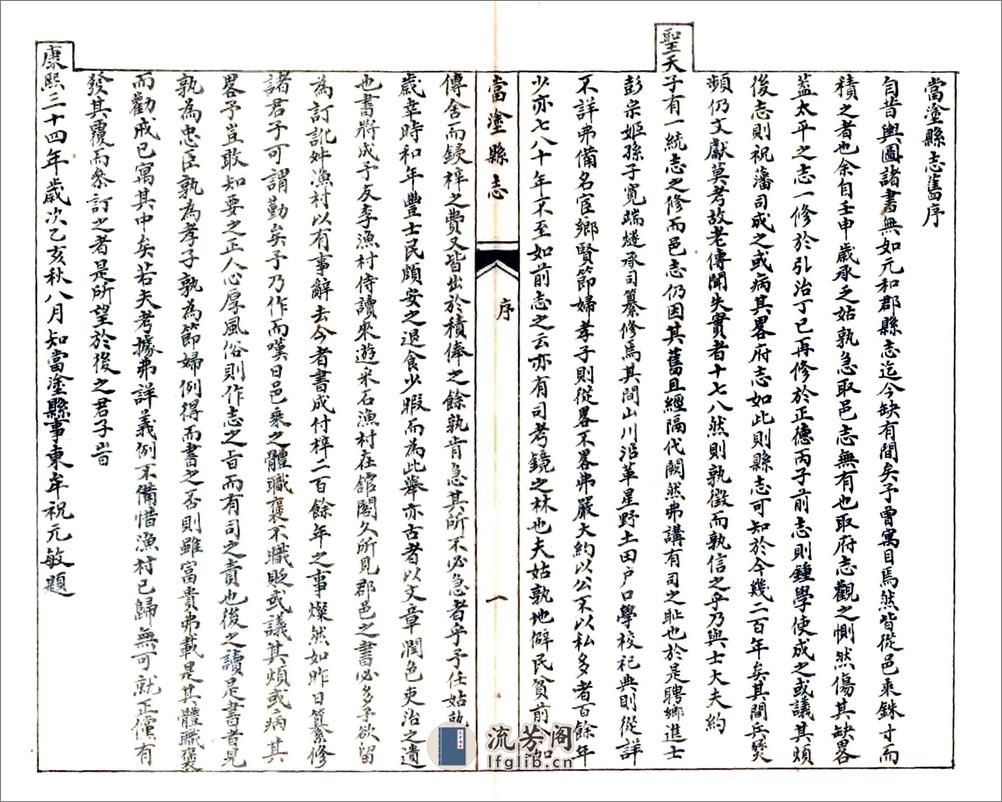 當塗縣志舊序
自昔輿圖諸書無如元和郡縣志迄今缺有間矣予曾寓目焉然皆從邑乘銖寸而
積之者也余自壬申歲承乏姑孰急取邑志無有也取府志觀之惻然傷其缺畧
蓋太平之志一修於弘治丁巳再修於正德丙子前志則鍾學使成之或議其煩
後志則祝藩司成之或病其畧府志如此則縣志可知於今幾二百年矣其間兵燹
頻仍文獻莫考故老傳聞失實者十七八然則孰徵而孰信之乎乃與士大夫約
聖天子有一統志之修而邑志仍因其舊且經隔代闕然弗講有司之恥也於是聘鄉進士
彭宗姬孫子寬端燧承司纂修焉其間山川沿革星野土田戶口學校祀典則從詳
不詳弗備名宦鄉賢節婦孝子則從畧不畧弗嚴大約以公不以私多者百餘年
少亦七八十年不至如前志之云亦有司考鏡之林也夫姑孰地僻民貧前
當塗縣志
序
一
傳舍而鋟梓之費又皆出於積俸之餘孰肯急其所不必急者乎予任姑孰
歲幸時和年豐士民頗安之退食少暇而為此舉亦古者以文章潤色吏治之遺
也書將成予友李漁村侍讀來遊采石漁村在館閣久所見郡邑之書必多予欲留
為訂訛姙漁村以有事辭去今者書成付梓二百餘年之事燦然如昨日纂修
諸君子可謂勤矣予乃作而嘆曰邑乘之體職褒不職貶或議其煩或病其
畧予豈敢知要之正人心厚風俗則作志之旨而有司之責也後之讀是書者見
孰為忠臣孰為孝子孰為節婦例得而書之否則雖富貴弗載是其體職褒
而勸戒已寓其中矣若夫考據弗詳義例不備惜漁村已歸無可就正僅有
發其覆而叅訂之者是所望於後之君子旹
康熙三十四年歲次乙亥秋八月知當塗縣事東牟祝元敏題
流芳阁
lfglib.cn